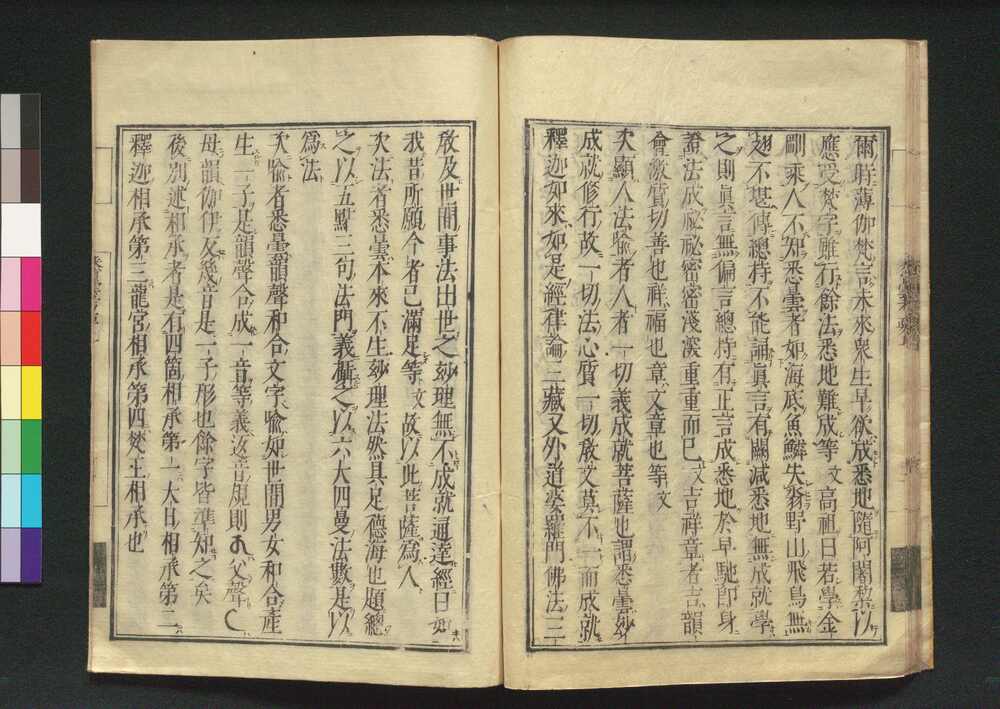 爾時薄伽梵言未來衆生早欲成悉地隨阿闍梨以
應受梵字雖行餘法悉地難成等文高祖曰若學金
剛乘人不知悉曇者如海底魚鱗失翁野山飛鳥無
翅不堪傳總持不能誦眞言有闕減悉地無成就學
之則眞言無偏言總持有正言成悉地於早馳即身
證法成祕祕密密淺深重重而已文吉祥章者吉韻
會激質切善也祥福也章文章也等文
次顯人法喩者人者一切義成就菩薩也謂悉曇玅
成就修行故一切法心質一切教文莫不一而成就
釋迦如來如是經律論三藏又外道婆羅門佛法三
敎及世間事法出世之玅理無不成就通達經曰如
我昔所願今者已滿足等文故以此菩薩爲人
次法者悉曇本來不生玅理法然具足德海也題總
之以五點三句法門義極之以六大四曼法數是以
爲法
次喩者悉曇韻聲和合文字喩如世間男女和合產
生一子是韻聲合成一音等義返音規則父聲
母韻伽伊反幾音是一子形也餘字皆準知之矣
後別述相承者是有四箇相承第一大日相承第二
釋迦相承第三龍宮相承第四梵王相承也